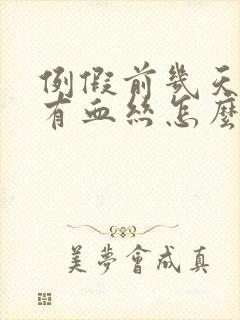 例假前幾天
有血絲怎麼
美夢會成真